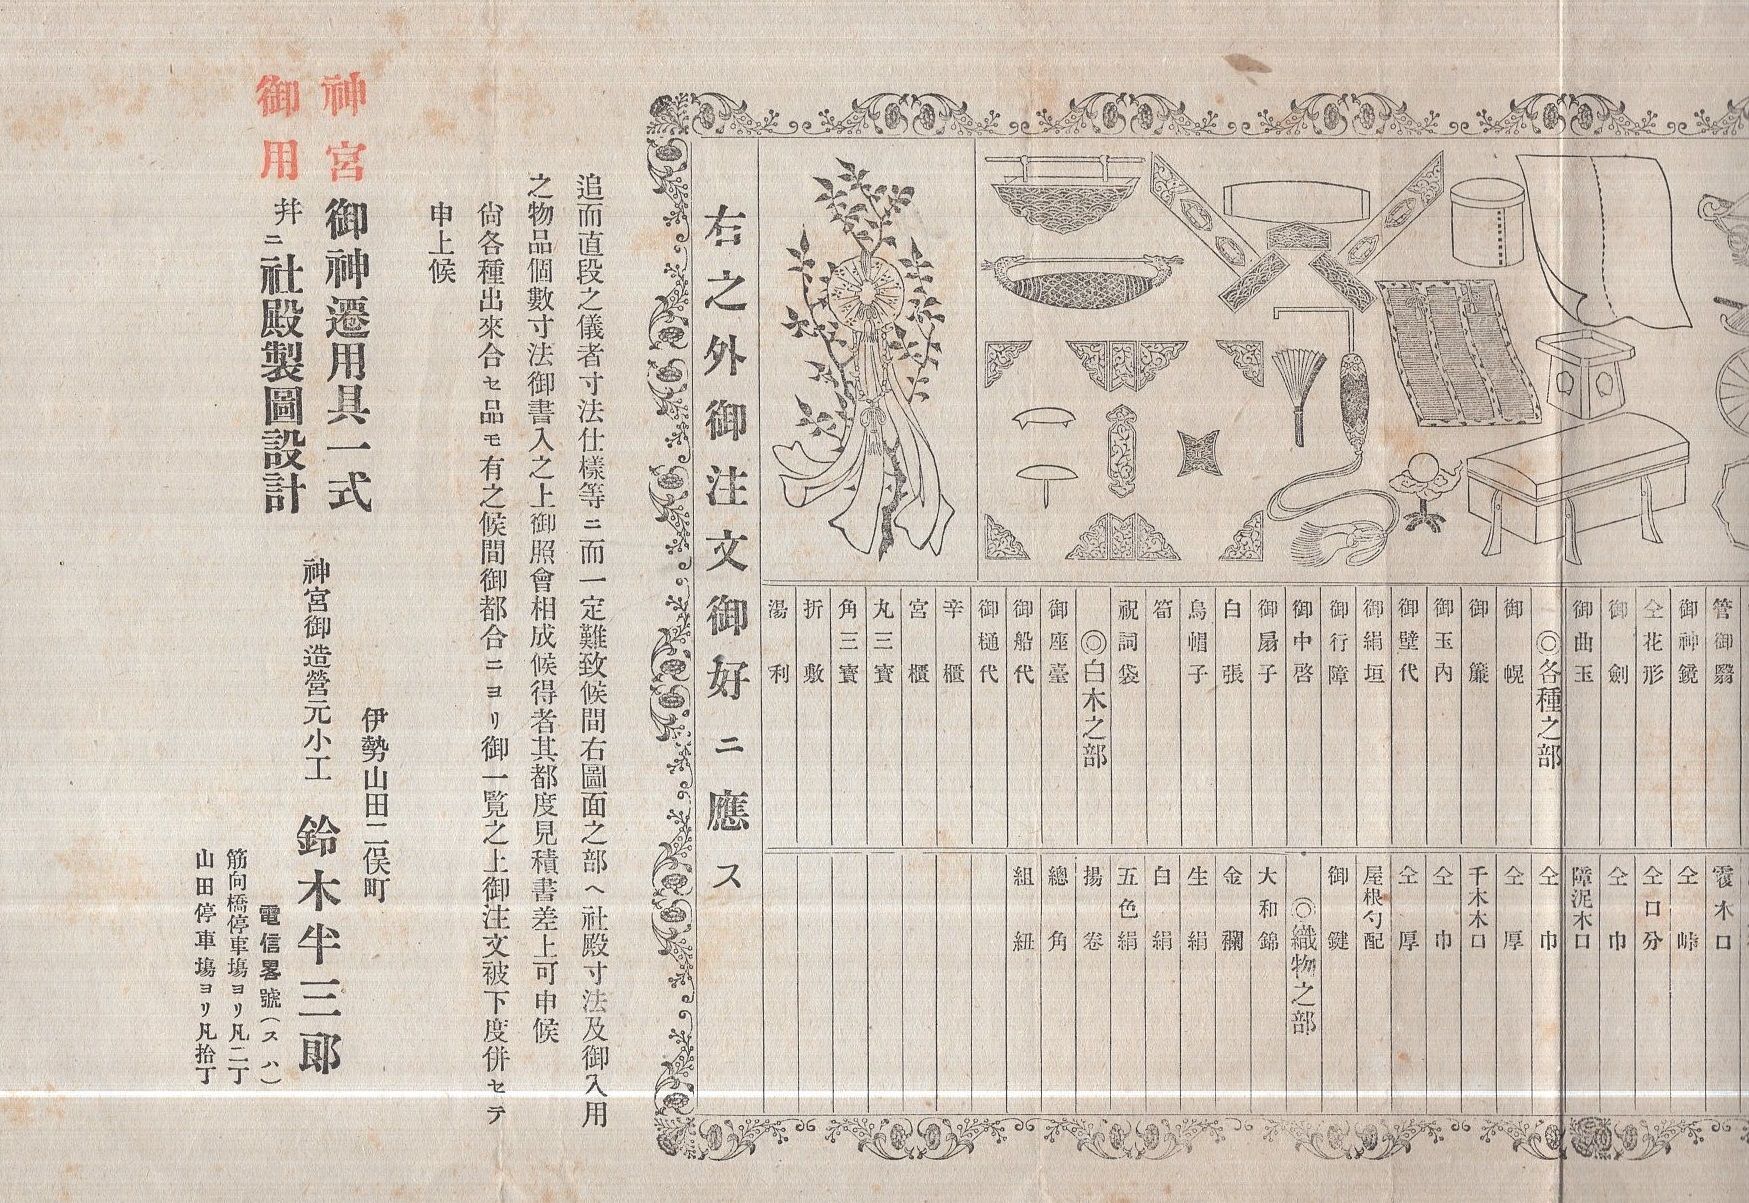 管御翳
御神鏡
仝花形
御劍
御曲玉
◎各種之部
御幌
御簾
御玉內
御壁代
御絹垣
御行障
御中啓
御扇子
白張
烏帽子
笏
祝詞袋
◎白木之部
御座臺
御船代
御樋代
辛櫃
宮櫃
丸三寶
角三寶
折敷
湯利
覆木口
仝峠
仝口分
仝巾
障泥木口
仝巾
仝厚
千木木口
仝巾
仝厚
屋根勾配
御鍵
◎織物之部
大和錦
金襴
生絹
白絹
五色絹
揚卷
總角
組紐
右之外御注文御好ニ應ス
追而直段之儀者寸法仕樣等ニ而一定難致候間右圖面之部ヘ社殿寸法及御入用
之物品個數寸法御書入之上御照會相成候得者其都度見積書差上可申候
尙各種出來合セ品モ有之候間御都合ニヨリ御一覽之上御注文被下度併セテ
申上候
神宮
御用
御神遷用具一式
幷ニ社殿製圖設計
伊勢山田二俣町
神宮御造營元小工 鈴木半三郎
電信畧號（スハ）
筋向橋停車塲ヨリ凡二丁
山田停車塲ヨリ凡拾丁